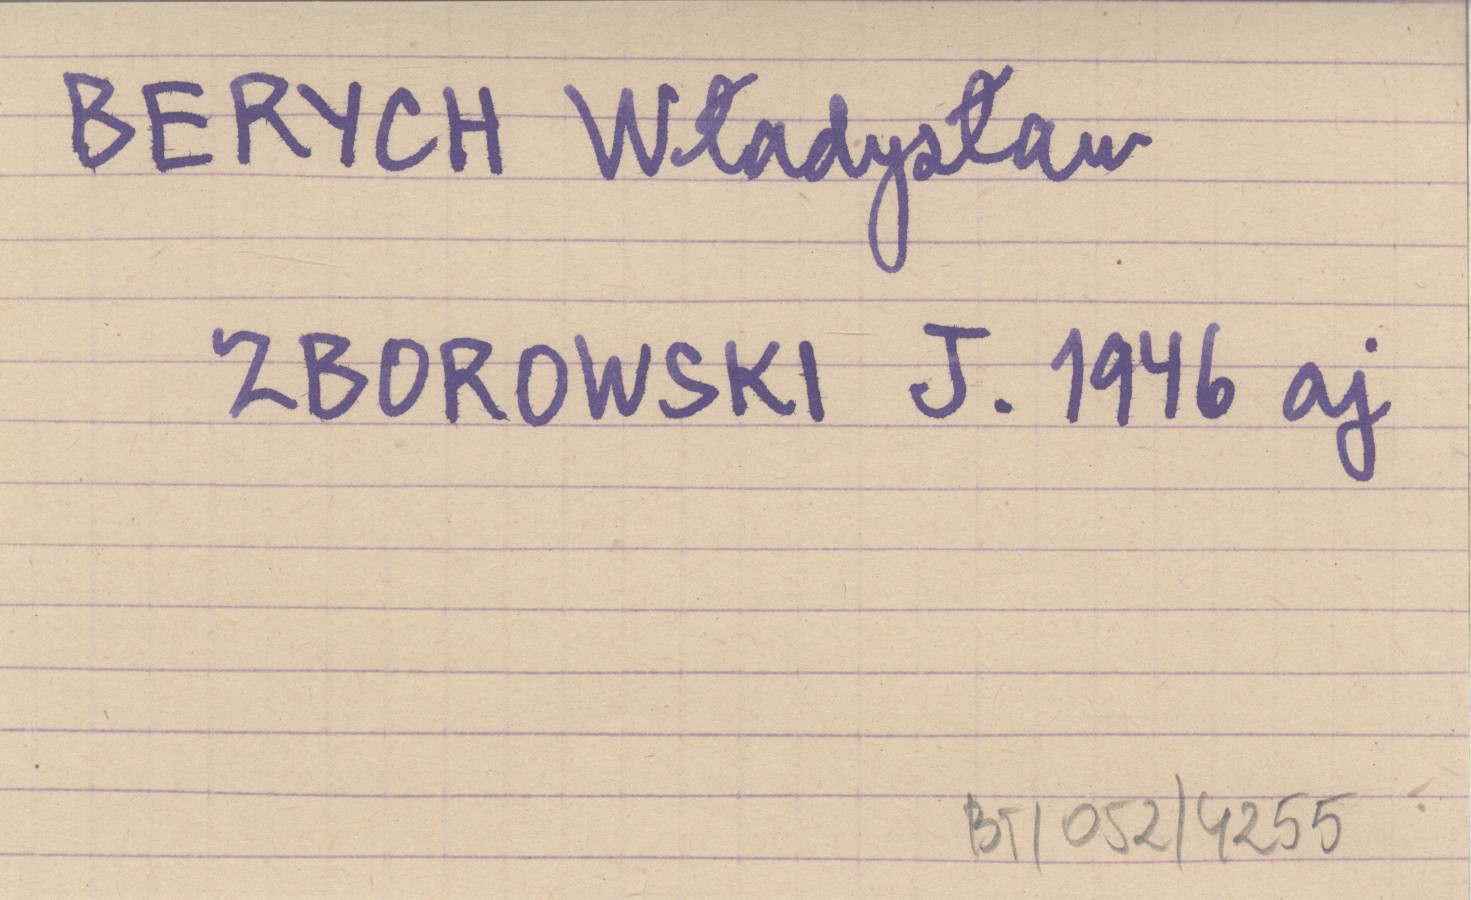 BERYCH Władysław
ZBOROWSKI J. 1946 aj
BT/052/4255